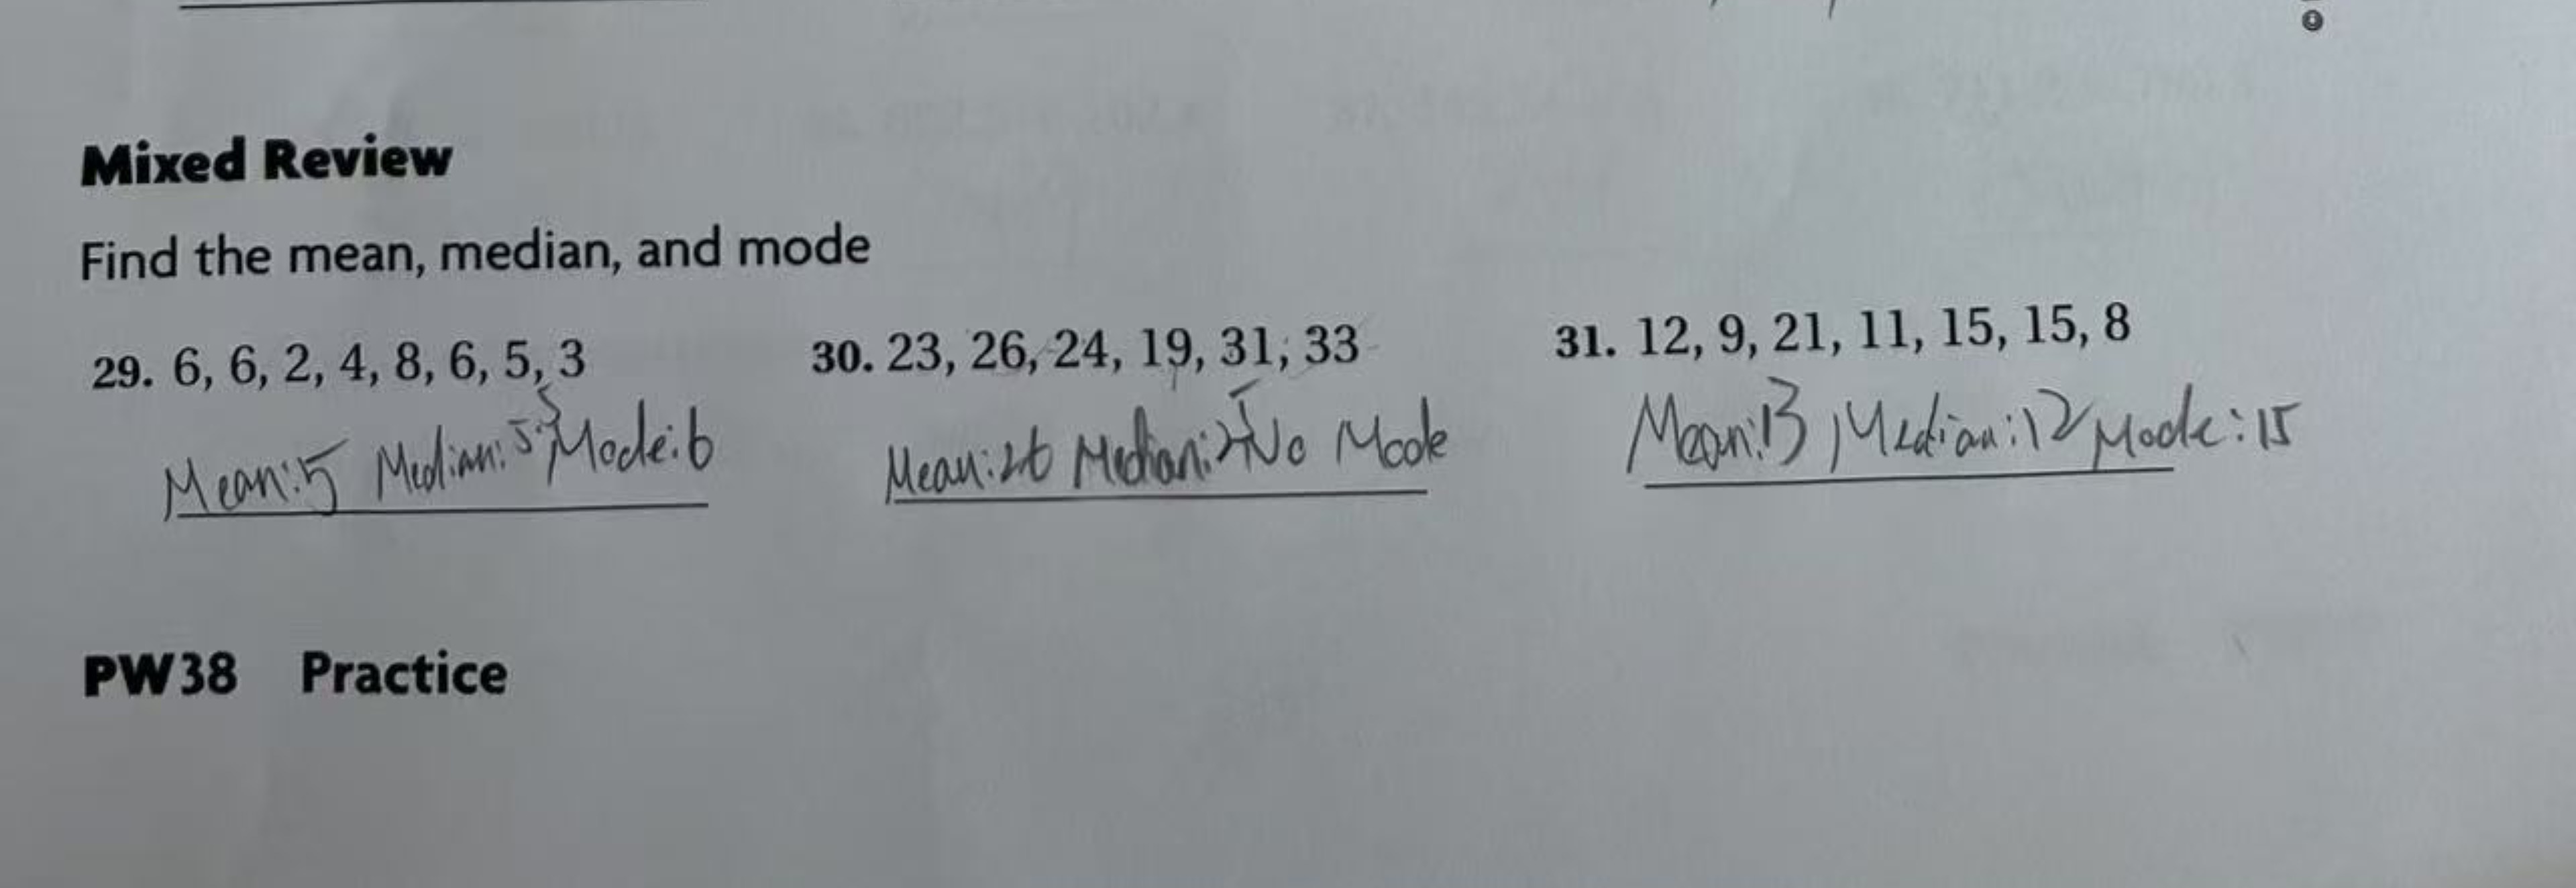 Mixed Review
Find the mean, median, and mode
29. 6, 6, 2, 4, 8, 6, 5, 3
Mean:5 Median:5.5 Mode:6
30. 23, 26, 24, 19, 31, 33
Mean:26 Median:25 No Mode
31. 12, 9, 21, 11, 15, 15, 8
Mean:13 Median:12 Mode:15
PW38 Practice